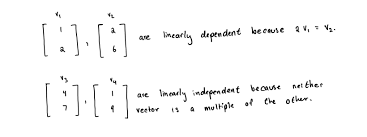 v₁ v₂
[1 2], [2 6] are linearly dependent because 2v₁ = v₂.
v₃ v₄
[4 7], [1 9] are linearly independent because neither
vector is a multiple of the other.